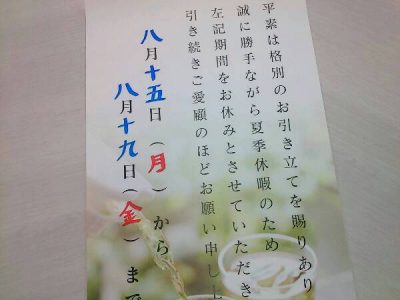 平素は格別のお引き立てを賜りあり
誠に勝手ながら夏季休暇のため
左記期間をお休みとさせていただき
引き続きご愛顧のほどお願い申し
八月十五日(月)から
八月十九日(金)まで